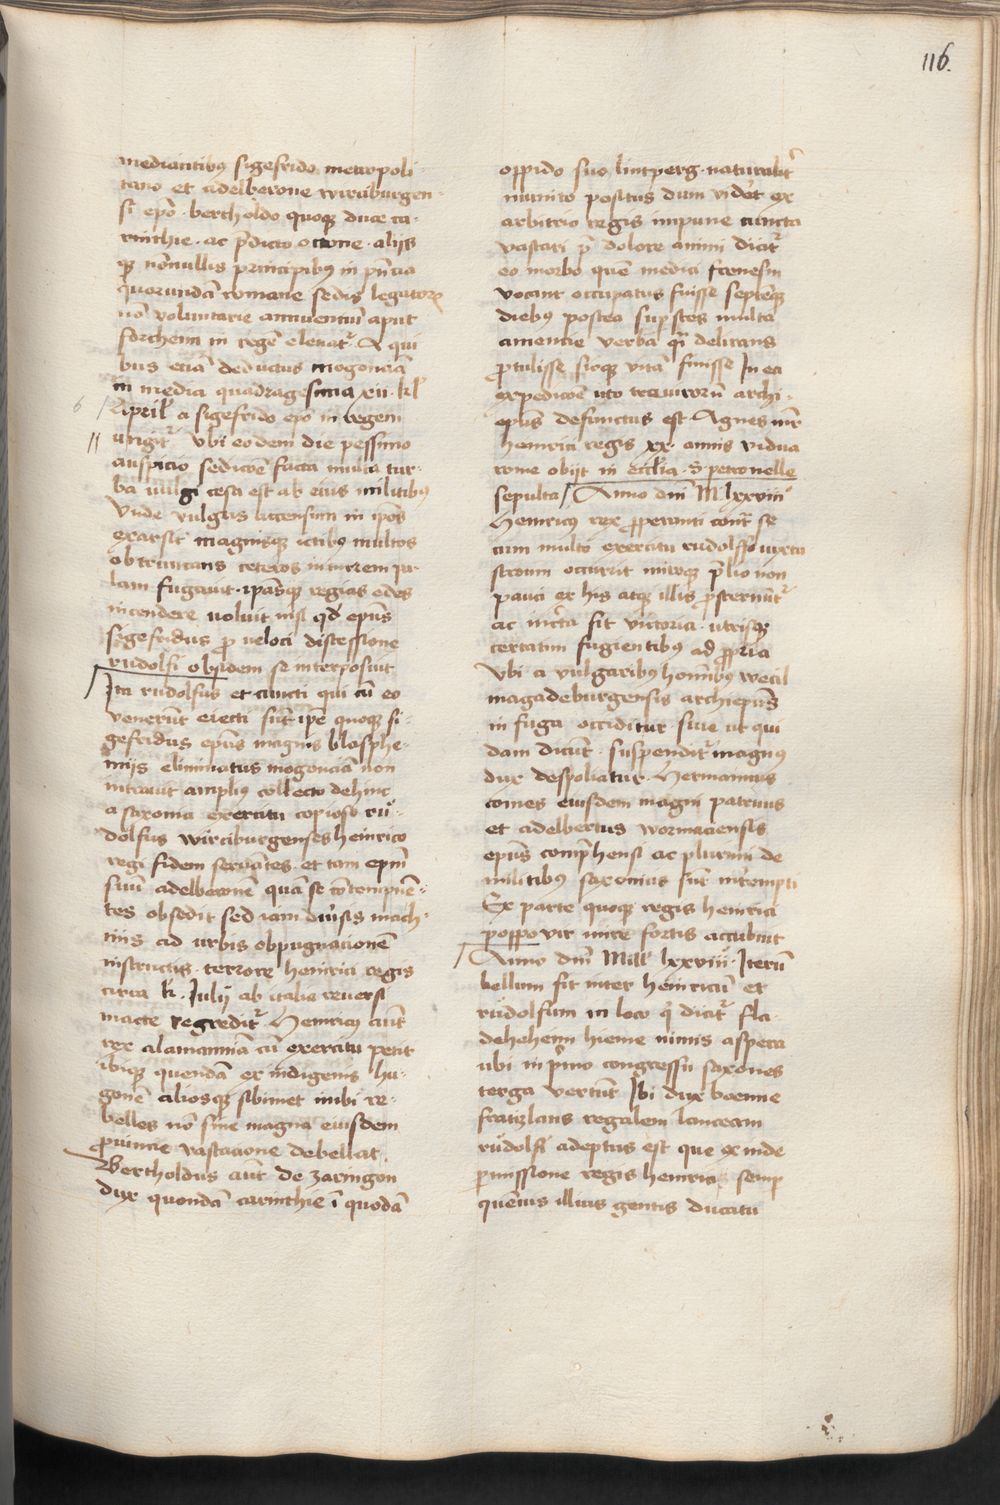 116.
mediantibus sigefrido metropoli-
tano et adelberone wirciburgen-
si epo. bertholdo quoque duce ca-
rinthie. ac p̄dicto ottone. aliis
q̄ nōnullis principibus in pn̄cia
quorundā romane sedis legatorū
nō voluntarie annuentiū aput
forcheim in regē eleuat̄. A qui
bus etiā deductus mogonciā
in media quadragesima xii. kl'
April' a sigefrido epo in regem
ungit̄ Vbi eodem die pessimo
auspicio sedicōe facta multa tur-
ba uulgi cesa est ab eius militibus
Vnde vulgus accensum in ip̄os
exarsit magnisque ictibus multos
obtruncans ceteros in urbem
fugauit. ipāsque regias edes
incendere uoluit nisi qd' ep̄us
sigefridus p̄ veloci discessione
rudolfi obsidem se interposuit
Ita rudolfus et cuncti qui cū eo
venerūt eiecti sūt ip̄e quoque si-
gefridus ep̄us magnis blasphe-
miis eliminatus mogonciā non
intrauit amplius collecto dehinc
a saxonia exercitu copioso rů-
dolfus wirciburgenses heinrico
regi fidem seruātes. et tam epm̄
suū adelberonē quā se cōtempnē-
tes obsedit sed iam diūsis mach-
inis ad urbis obpugnacionē
instructis. terrore heinrici regis
circa kl. Julij ab italia reuersi
macte regredit̄ Heinricus aūt
rex alamanniā cū exercitu petit
ibique quendā ex indigenis hu-
gonē aliosque sibimet inibi re-
belles nō sine magna eiusdem
prouincie vastacione debellat.
Bertholdus aūt de zaringon
dux quondā carinthie ī quodā
oppido suo lintperg. naturalit̄
munito positus dum vidēt ex
arbitrio regis impune cuncta
vastari p̄ dolore animi dicit̄
eo morbo quē medici frenesin
vocant occupatus fuisse septēque
diebus postea supstes multa
amencie verba q̄i delirans
protulisse sicque vitā finisse In ea
expedicōe uto treuirorū archi-
ep̄us defunctus est. Agnes mr̄
heinrici regis xx. annis vidua
rome obijt in eccl'ia. S. petronelle
sepulta Anno dn̄i M lxxviii
Heinricus rex properanti cont̄ se
cum multo exercitu rudolffo iuxta
stroum occurrit utroque p̄lio non
pauci ex his atque illis prosternūt̄
ac incerta fit victoria. utrisque
certatim fugientibus ad propria
Vbi a vulgaribus homibus wecil
magadeburgensis archiepus
in fuga occiditur. siue ut qui
dam dicūt. suspendit̄ magnus
dux despoliatur. Hermannus
comes eiusdem magni patruus
et adelbertus wormaciensis
ep̄us comphensi ac plurimi de
militibus saxonias sūt intempti
Ex parte quoque regis heinrici
poppo vir mire fortis accubuit
Anno dn̄i Mill' lxxviiii. Iterū
bellum fit inter heinricū et
rudolfum in loco q̄ dicit̄ fla-
deheheim hieme nimis aspera
ubi in p̄mo congressu saxones
terga vertūt Ibi dux boemie
fratizlaus regalem lanceam
rudolfi adeptus est que exinde
pmissione regis heinrici semp
quēuis illius gentis ducatu